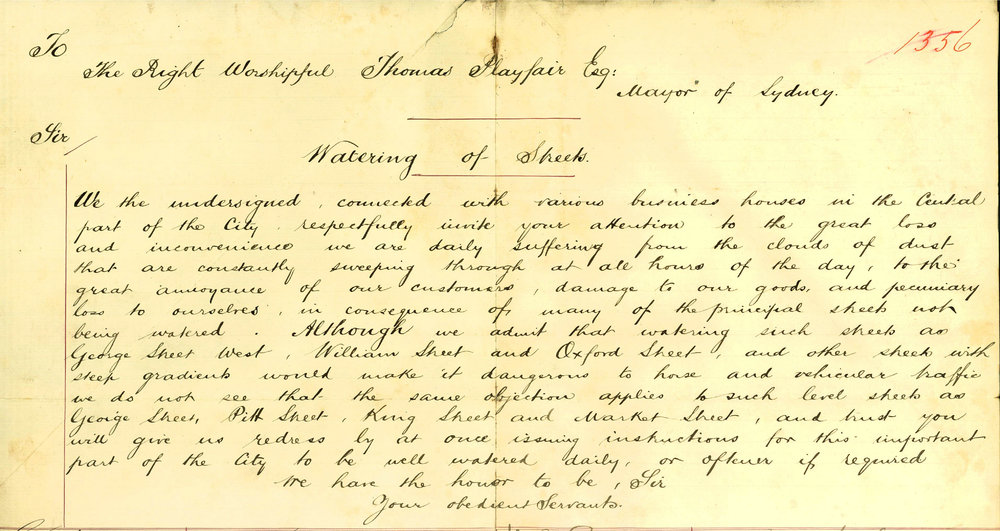 To
1356
The Right Worshipful Thomas Playfair Esq:
Mayor of Sydney.
Sir/
Watering of Streets.
We the undersigned, connected with various business houses in the Central
part of the City. respectfully invite your attention to the great loss
and inconvenience we are daily suffering from the clouds of dust
that are constantly sweeping through at all hours of the day, to the
great annoyance of our customers, damage to our goods, and pecuniary
loss to ourselves, in consequence of many of the principal streets not
being watered. Although we admit that watering such streets as
George Street West, William Street and Oxford Street, and other streets with
steep gradients would make it dangerous to horse and vehicular traffic
we do not see that the same objection applies to such level streets as
George Street, Pitt Street, King Street and Market Street, and trust you
will give us redress by at once issuing instructions for this important
part of the City to be well watered daily, or oftener if required
We have the honor to be, Sir
Your obedient Servants.